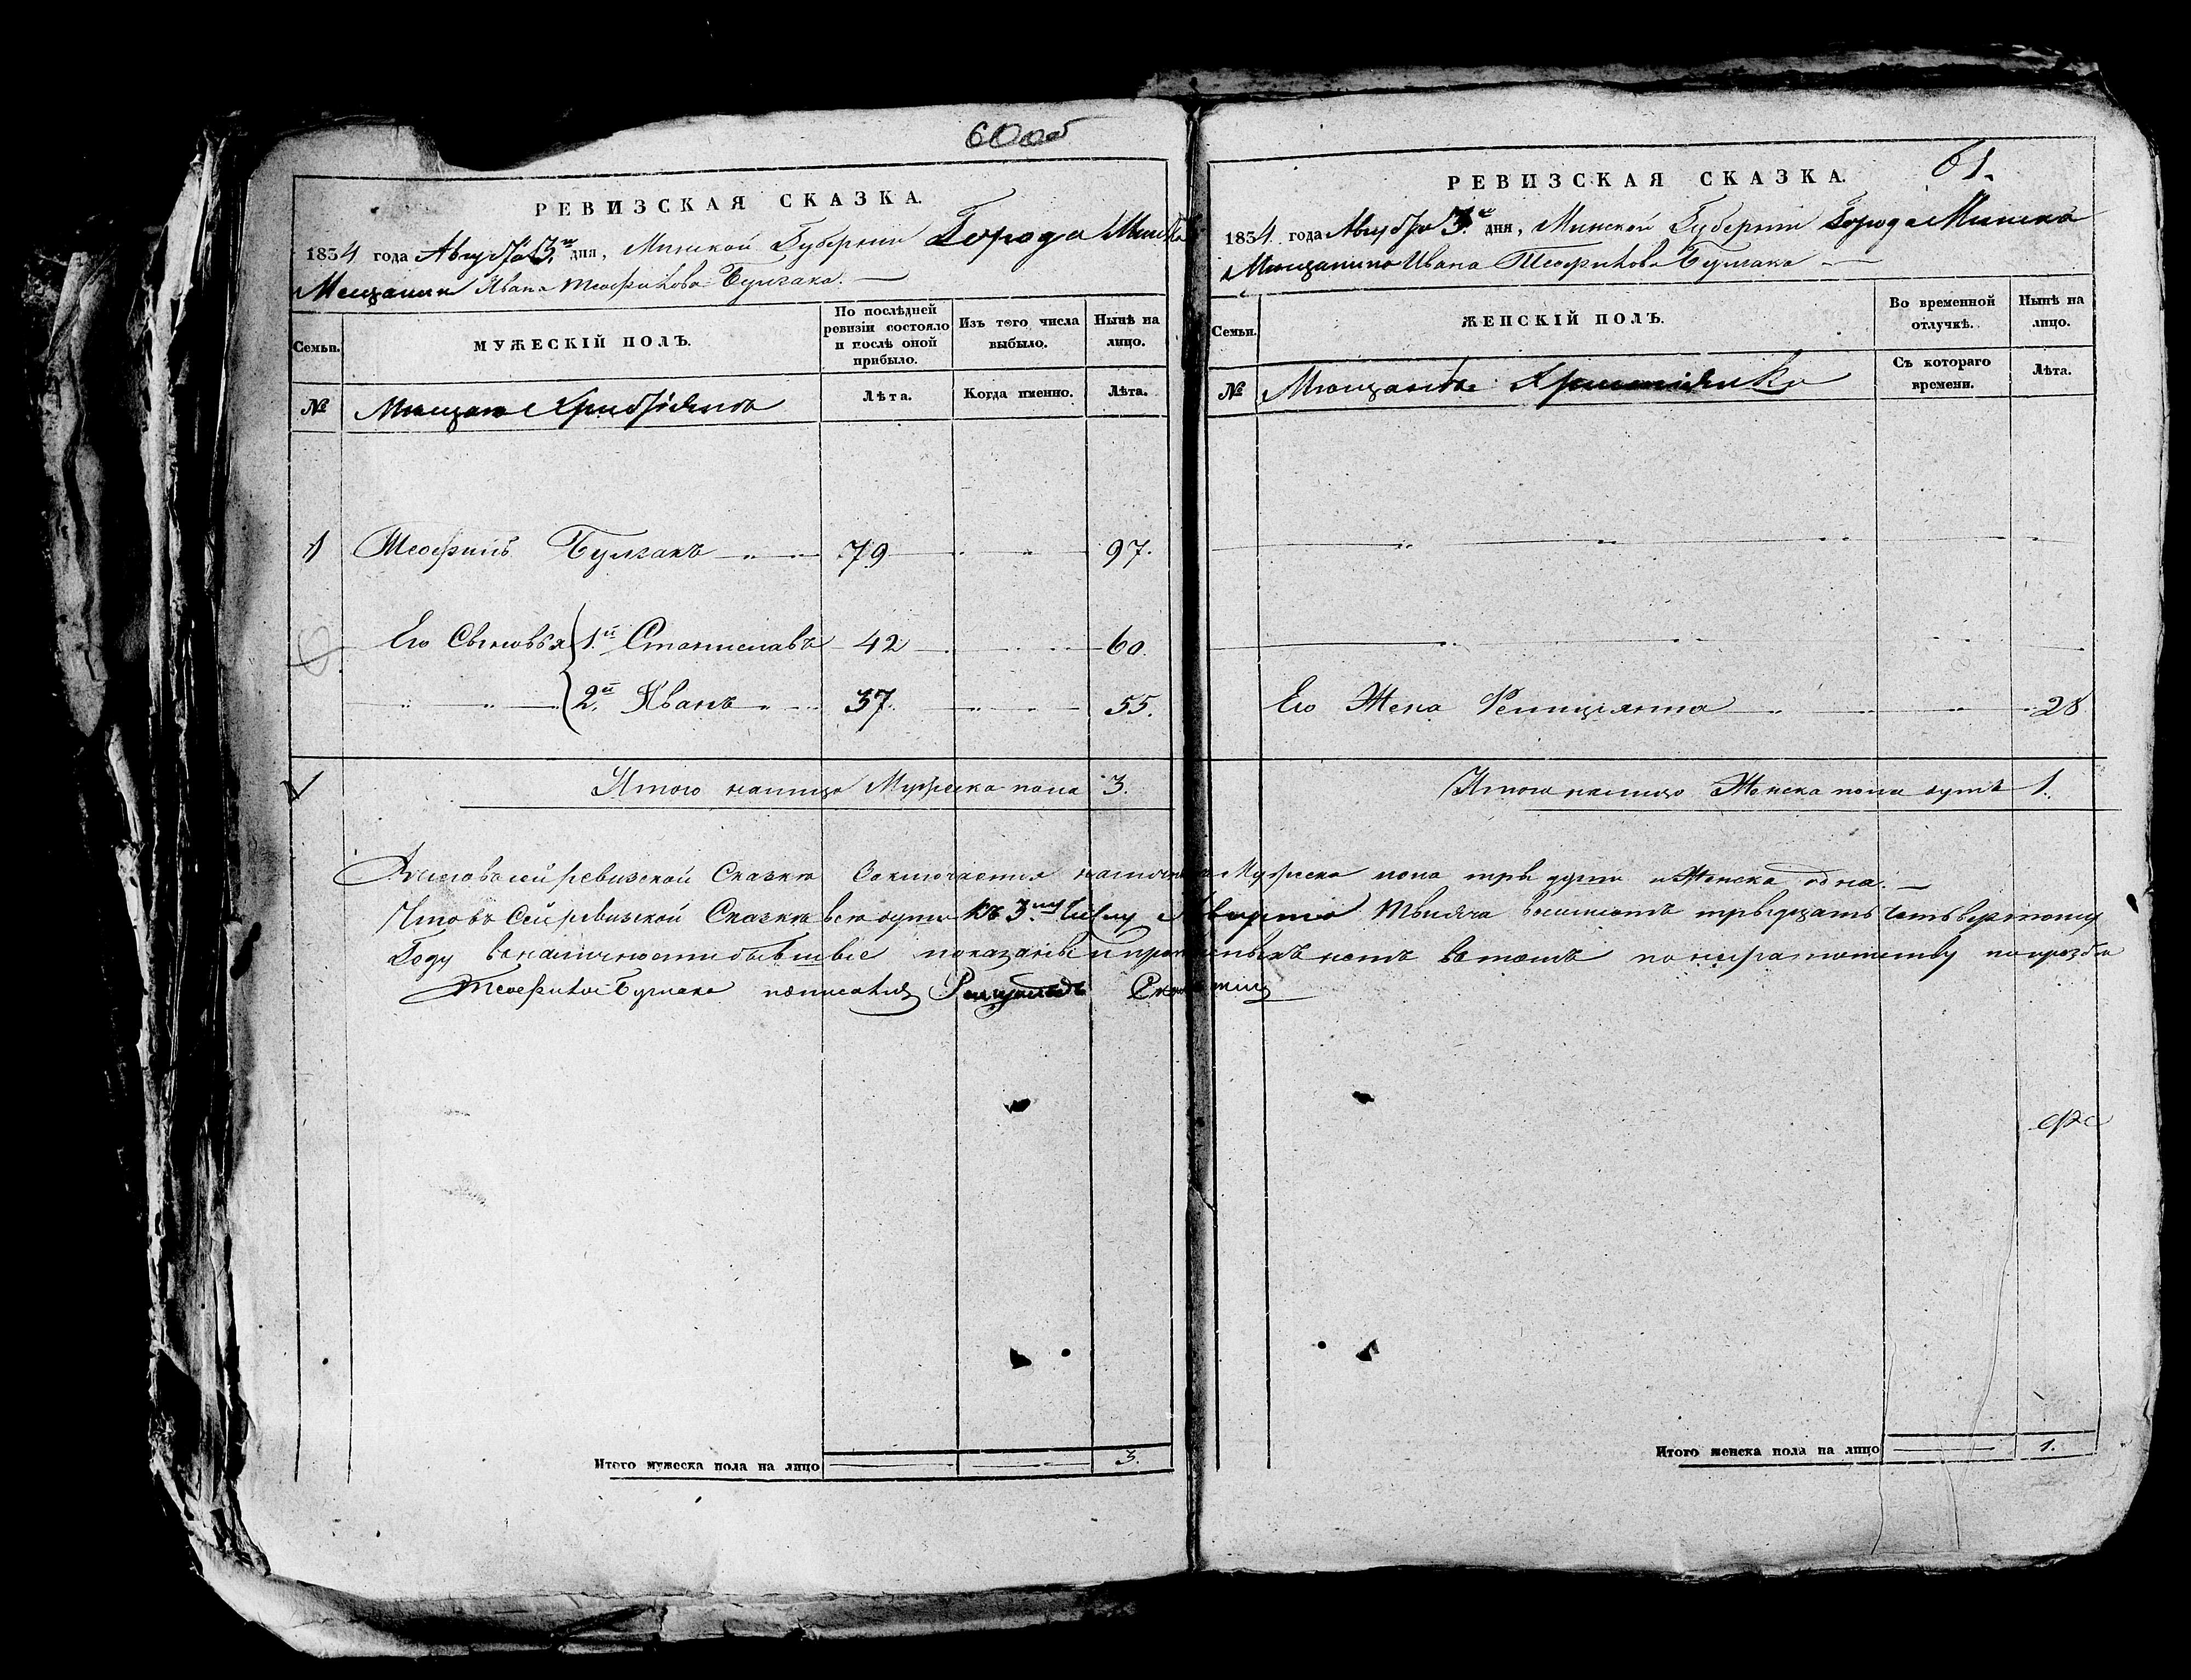 60 об
РЕВИЗСКАЯ СКАЗКА.
1834 года Августа 3го дня, Минской Губернии Города Минска
Мещанина Ивана Теофилова Булгака.
Семьи.
МУЖЕСКІЙ ПОЛЪ.
По послѣдней ревизіи состояло и послѣ оной прибыло.
Изъ того числа выбыло.
Нынѣ на лицо.
№
Мещане Христіяне
Лѣта.
Когда именно.
Лѣта.
1 Теофилъ Булгакъ 79 97.
Его Сыновья 1й Станиславъ 42 60.
2й Иванъ 37. 55.
Итого налицо Мужеска пола 3.
61.
РЕВИЗСКАЯ СКАЗКА.
1834 года Августа 3го дня, Минской Губернии Города Минска
Мещанина Ивана Теофилова Булгака
Семьи.
ЖЕНСКІЙ ПОЛЪ.
Во временной отлучкѣ.
Нынѣ на лицо.
№
Мещанки Християнки
Съ котораго времени.
Лѣта.
Его Жена Фелициянна 28
Итого налицо Женска пола душъ 1.
сей ревизской Сказкѣ Заключается Мужеска пола три души и Женска одна.
Что въ Сей ревизской Сказкѣ все души къ 3му Числу Августа тысяча восимсотъ тридцать четвертому
Году въ наличности бывшые показаны и нетъ вътомъ по неграмотству по прозбе
Теофилова Булгака
Итого мужеска пола на лицо 3.
Итого женска пола на лицо 1.